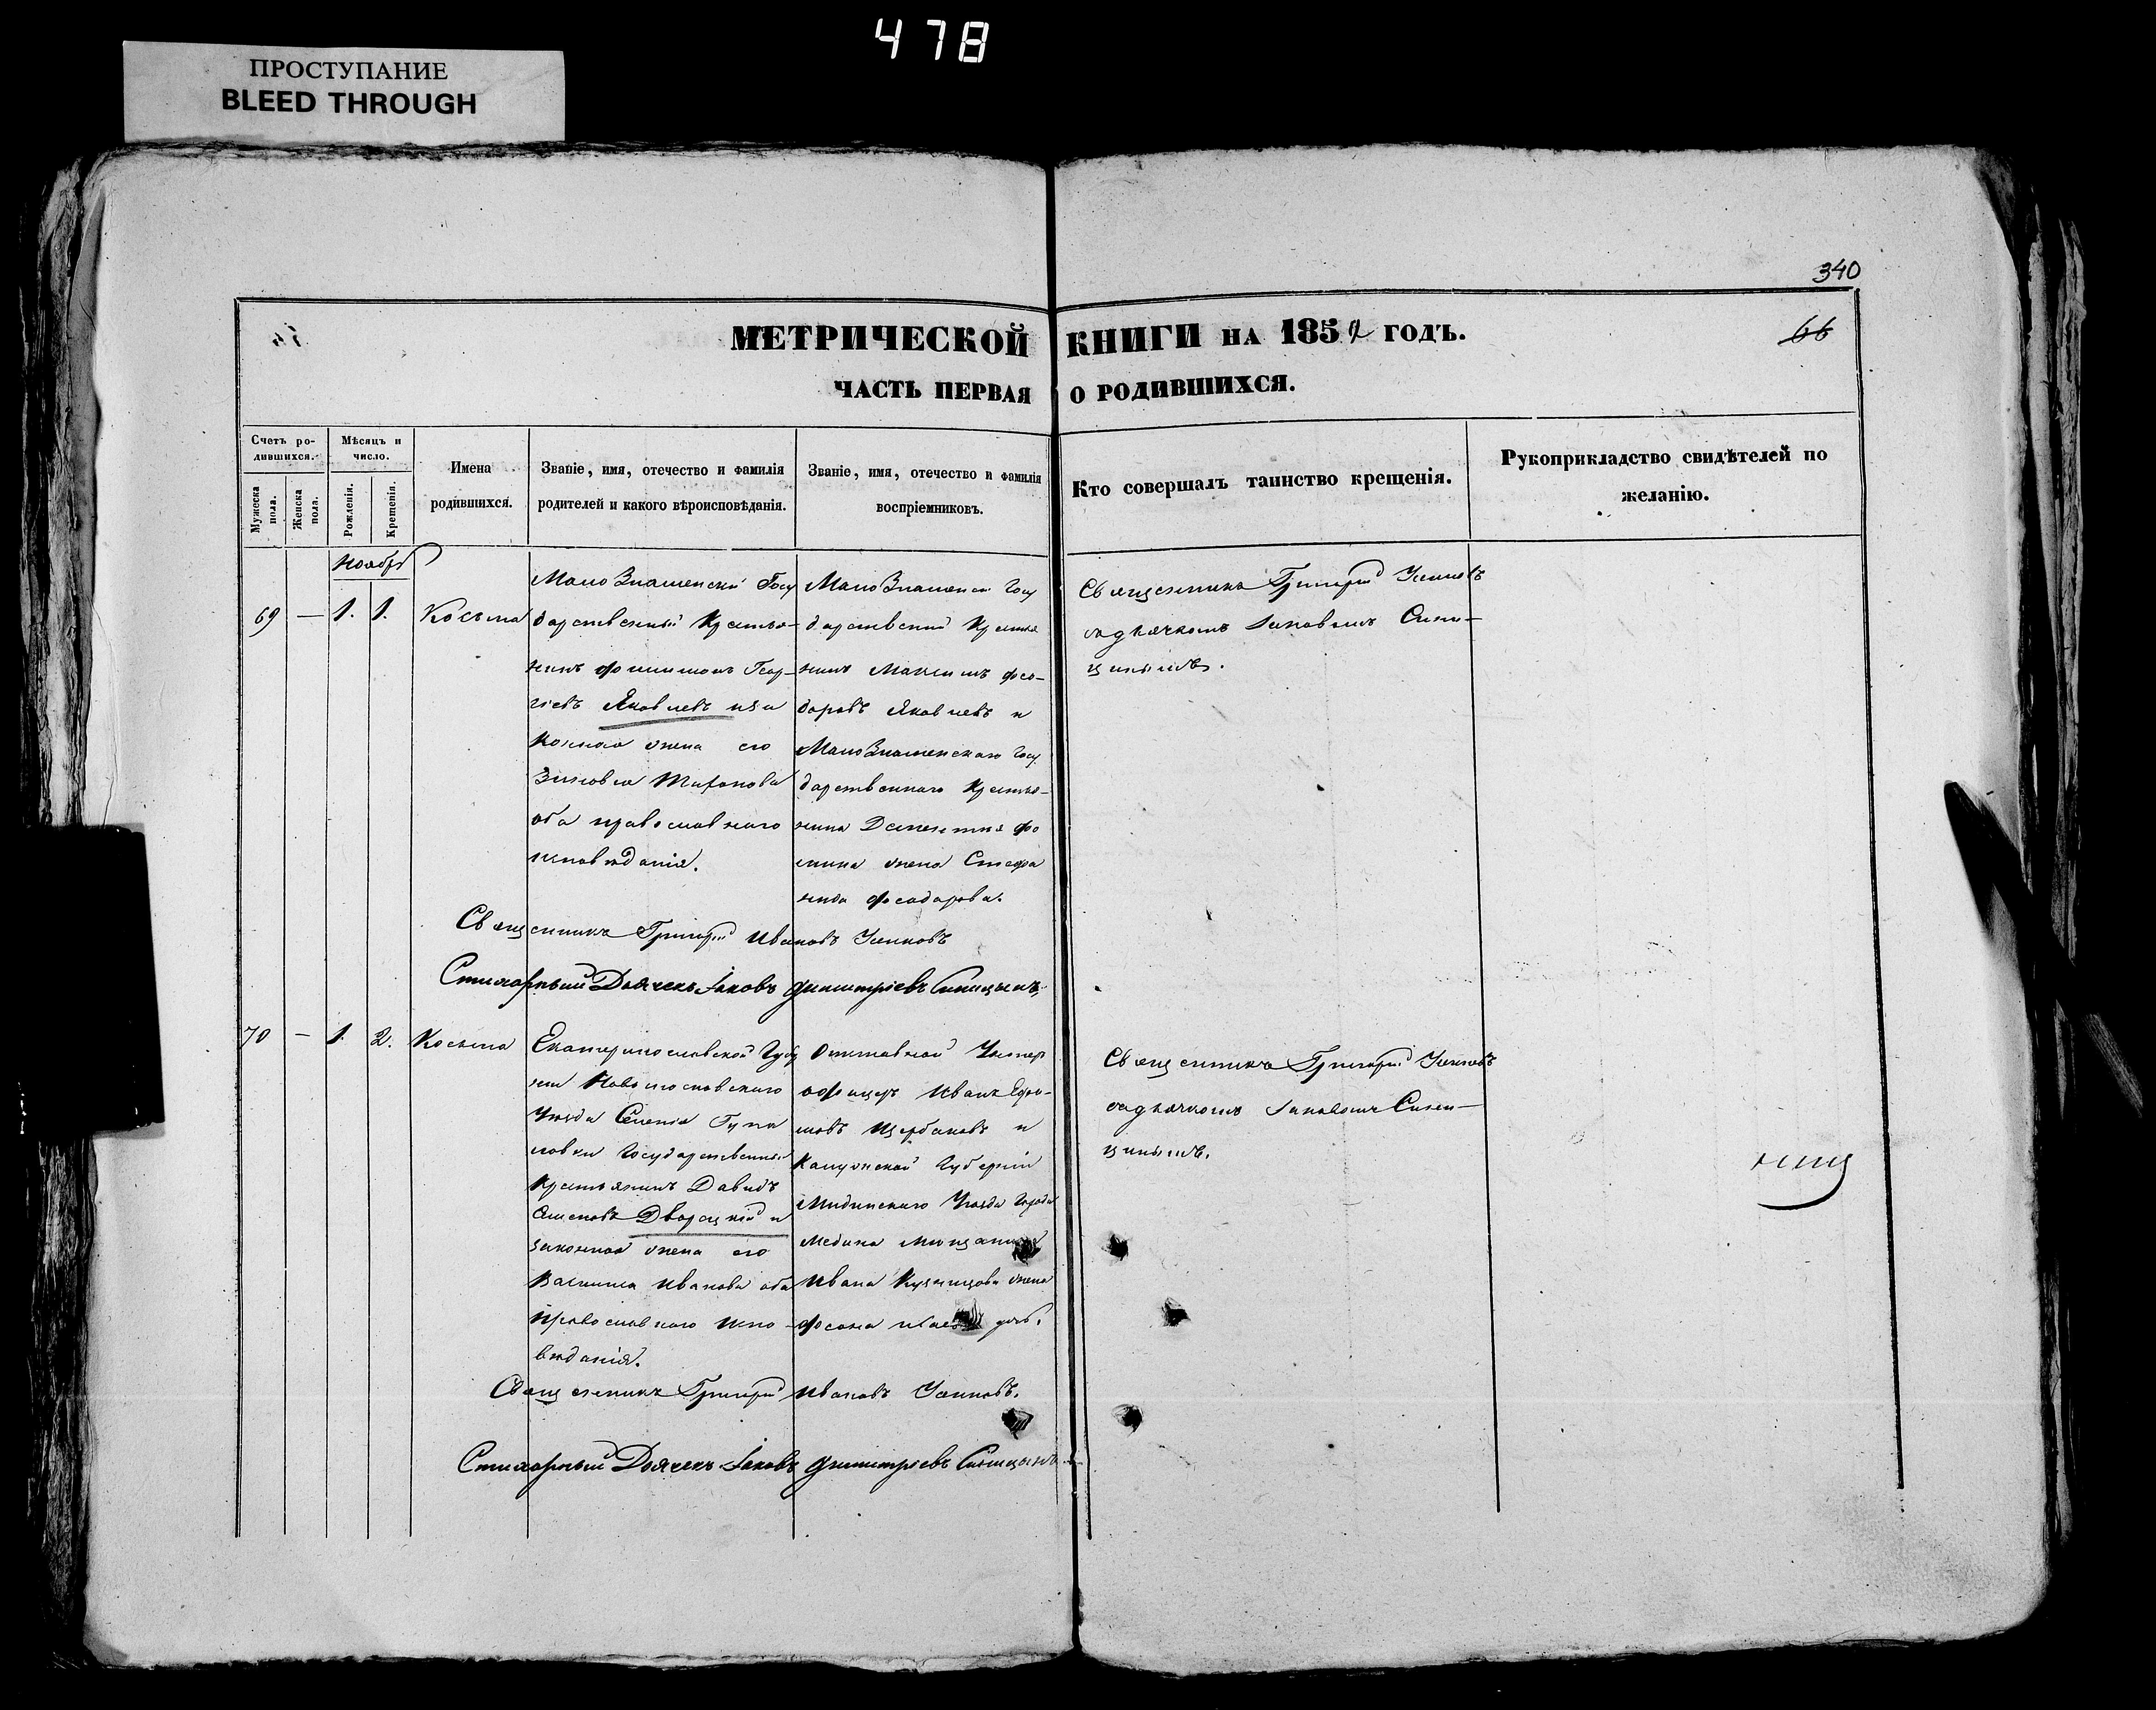 478
ПРОСТУПАНИЕ
BLEED THROUGH
340
МЕТРИЧЕСКОЙ КНИГИ НА 1852 ГОДЪ.
66
ЧАСТЬ ПЕРВАЯ О РОДИВШИХСЯ.
Счетъ ро-
дившихся.
Мужеска пола.
Женска пола.
Мѣсяцъ и
число.
Рожденія.
Крещенія.
Имена
родившихся.
Званіе, имя, отечество и фамилія
родителей и какого вѣроисповѣданія.
Званіе, имя, отечество и фамилія
воспріемниковъ.
Кто совершалъ таинство крещенія.
Рукоприкладство свидѣтелей по
желанію.
Ноябрь
69 — 1. 1. Косьма
МалоЗнаменскій Госу
дарственный Крестья-
нинъ Филимонъ Геор-
гіевъ Яковлевъ иза
конная жена его
Зиновія
оба православнаго
исповѣданія.
МалоЗнаменскій Госу
дарственный Крестья
нинъ Максимъ Фео-
доровъ Яковлевъ и
МалоЗнаменскаго Госу
дарственнаго Крестья-
нина Фо
мина жена Стефа
нида Феодорова.
Священникъ Григорій Усиковъ
съ дьячкомъ Іаковомъ Сини-
цинымъ.
Священникъ Григорій Ивановъ Усиковъ
Стихарный Дьячекъ Іаковъ Димитріевъ Синицынъ.
70 — 1. 2. Косьма
Екатеринославской Губер
ніи Новомосковскаго
Уѣзда Селенія
ловки Государственный
Крестьянинъ Давидъ
Семеновъ Дворецкій и
законная жена его
Васииса Иванова оба
Православнаго Испо-
вѣданія.
Отставной Унтеръ
офицеръ Иванъ Ефи-
мовъ Щербаковъ и
Калужской Губерніи
Мидинскаго Уѣзда Города
Медина мѣщанина
Ивана Кузнецова жена
Феона
Священникъ Григорій Усиковъ
съ дьячкомъ Іаковомъ Сини-
цинымъ.
Священникъ Григорій Ивановъ Усиковъ.
Стихарный Дьячекъ Іаковъ Димитріевъ Синицынъ